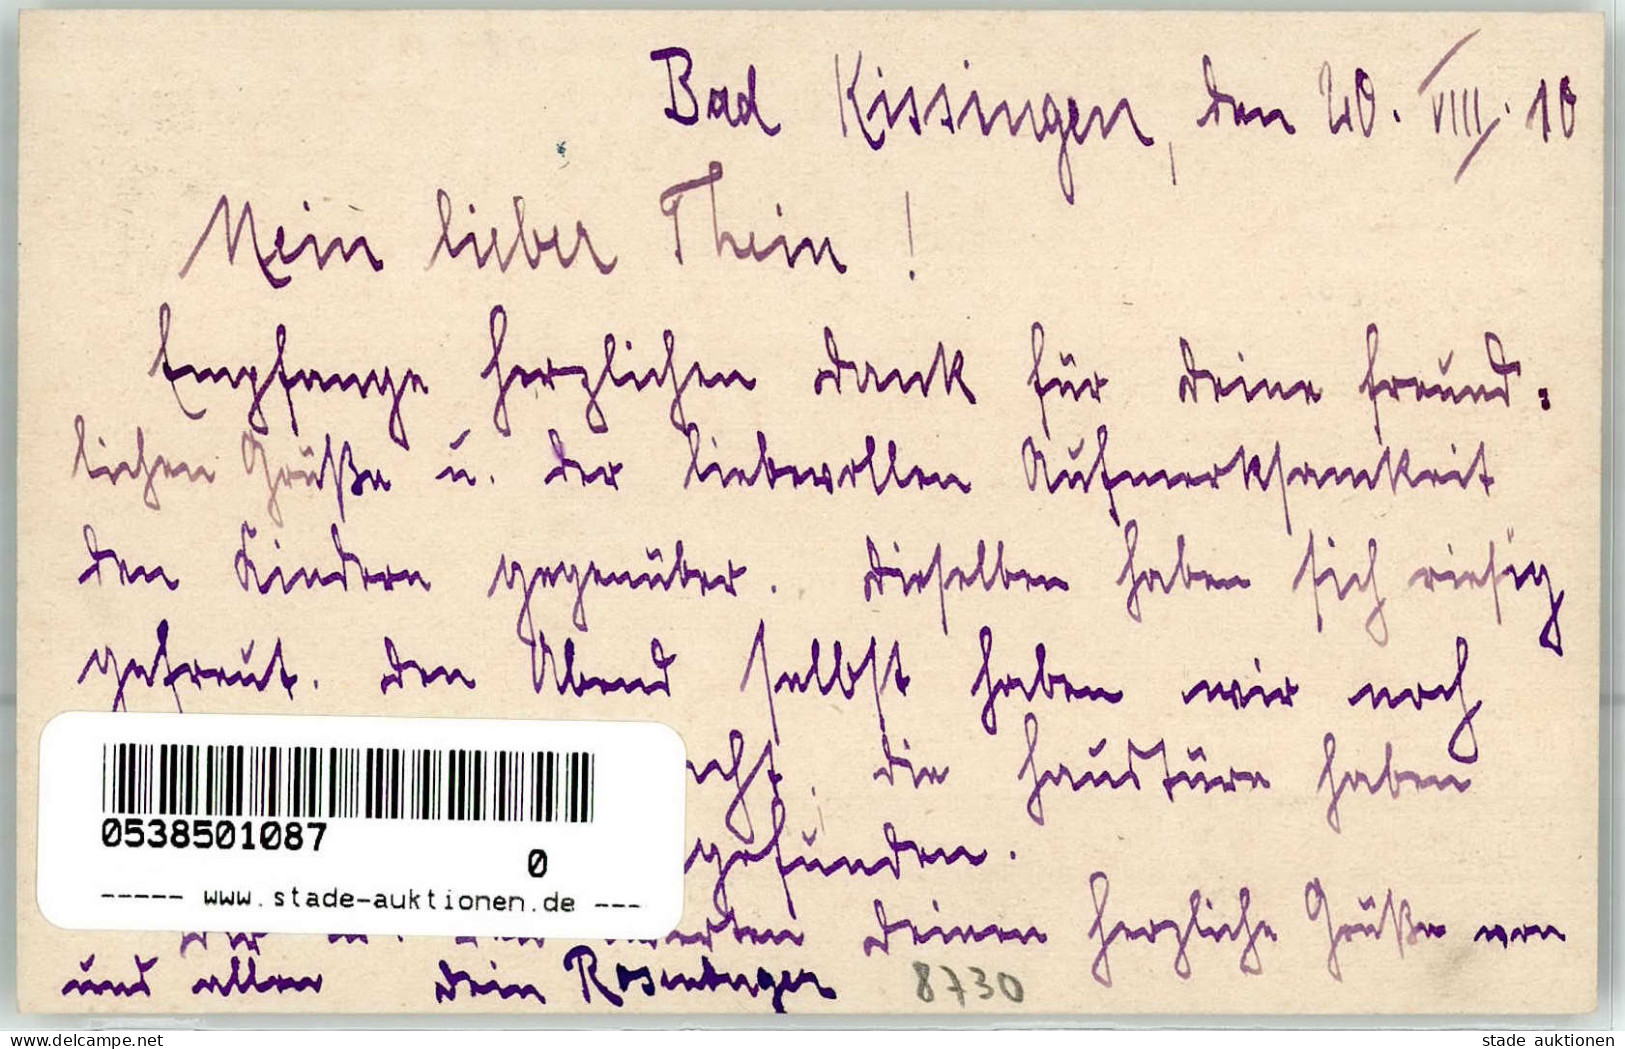 Bad Kissingen, den 20. VIII. 10
Mein lieber Thein!
Empfange herzlichen Dank für Deine freund=
lichen Grüße u. der liebevollen Aufmerksamkeit
den Kindern gegenüber. Dieselben haben sich riesig
gefreut. Den Abend selbst haben wir noch
acht, die Haustüre haben
gefunden.
Dir u. den werten Deinen herzliche Grüße von
uns allen Dein
8730
0538501087
0
----- www.stade-auktionen.de ---
www.delcampe.net
stade auktionen